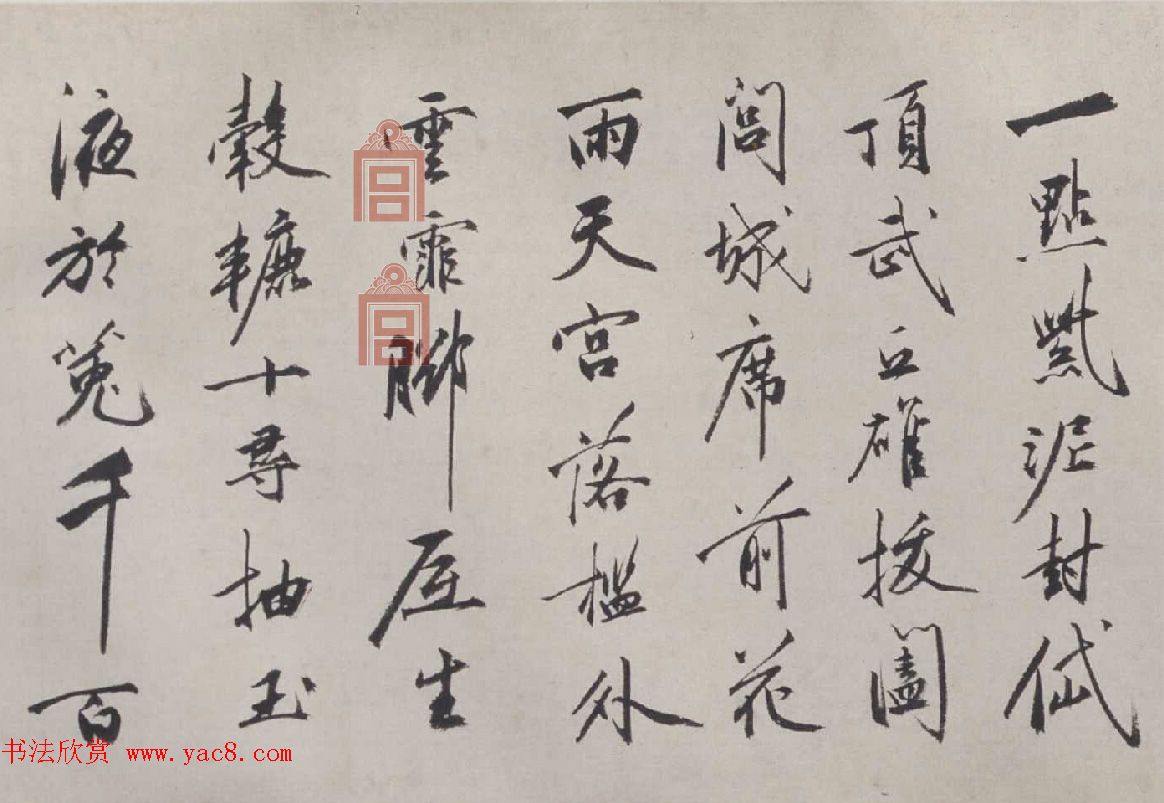 一點紫泥封岱
頂武丘雄拔闔
閭城席前花
雨天宮落檻外
雲霏腳底生
轂轆十尋抽玉
液於菟千百
书法欣赏 www.yac8.com